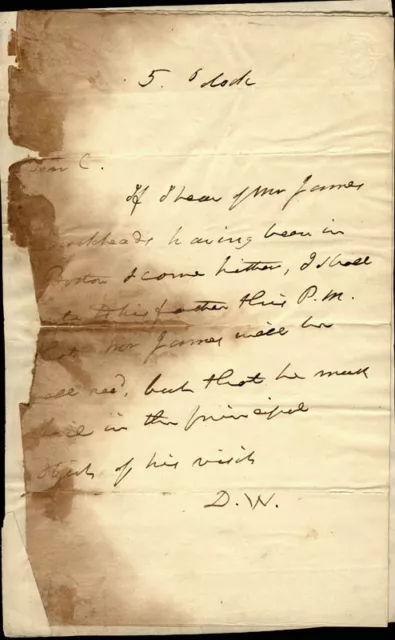 5. o'clock
Dear C.
If I hear of Mr James
having been in
Boston & come hither, I shall
to his father this P.M.
that Mr James will be
but that he must
fail in the principal
object of his visit
D.W.